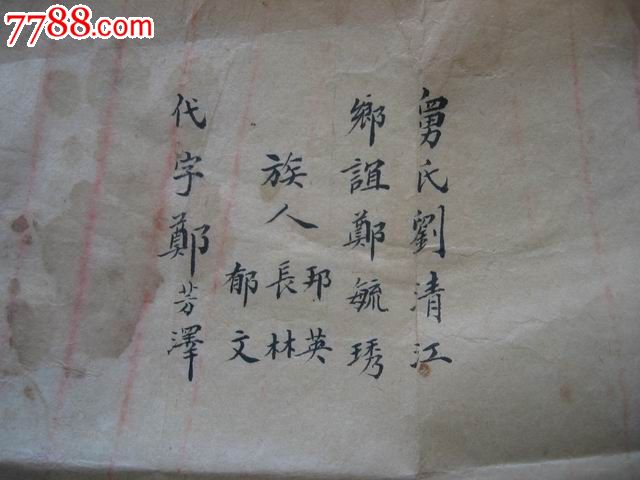 7788.com
舅氏劉清江
鄉誼鄭毓琇
族人
邦英
長林
郁文
代字鄭芳澤